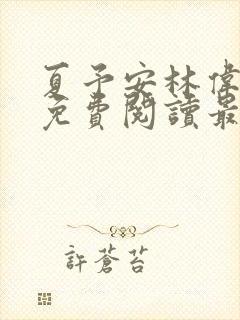 夏予安林偉
免費閱讀最
許蒼苔